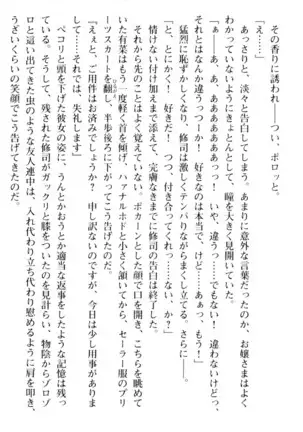 その香りに誘われ――つい、ポロッと。
「え……」
あっさりと、淡々と告白してしまい。あまりに意外な言葉だったのか、お嬢さまはよく
わかっていないようにきょとんとして――瞳を大きく見開いていた。
「ぁ――あ、あ、ああああああぁっ！　いや、違うっ……でもない！　違わないけどっ、
それとはなんか違うっつーか！　好きなのは本当で、けど……あぁっ、もう！」
猛烈に恥ずかしくなり、修司は激しくテンパりながらまくし立てる。さらに――。
「とにかく！　好きだ！　つっ、付き合ってくれっ……ない、か？」
情けない付け加えまで添えて、完膚なきまでに修司の告白は終了した。
それから先のことはよく覚えていない。ポカーンとした顔で口を開き、こちらを眺めて
いた有菜はもう一度軽く首を傾げ、ハァナルホドと小さく頷いてから、セーラー服のプリ
ーツスカートを翻し、半歩後ろに下がってこう告げたのだ。
「えぇと、ご用件はお済みでしょうか？　申し訳ないのですが、今日は少し用事がありま
して……それでは、失礼します」
ペコリと頭を下げた彼女の姿に、うんとかおうとか適当な返事をしたような記憶は残っ
ている。しかし、残された修司がガックリと膝をついたのを見計らい、物陰からゾロゾ
ロと這い出てきた虫のような友人連中は、入れ代わり立ち代わり慰めるように肩を叩き、
うざいくらいの笑顔でこう告げてきたのだ。